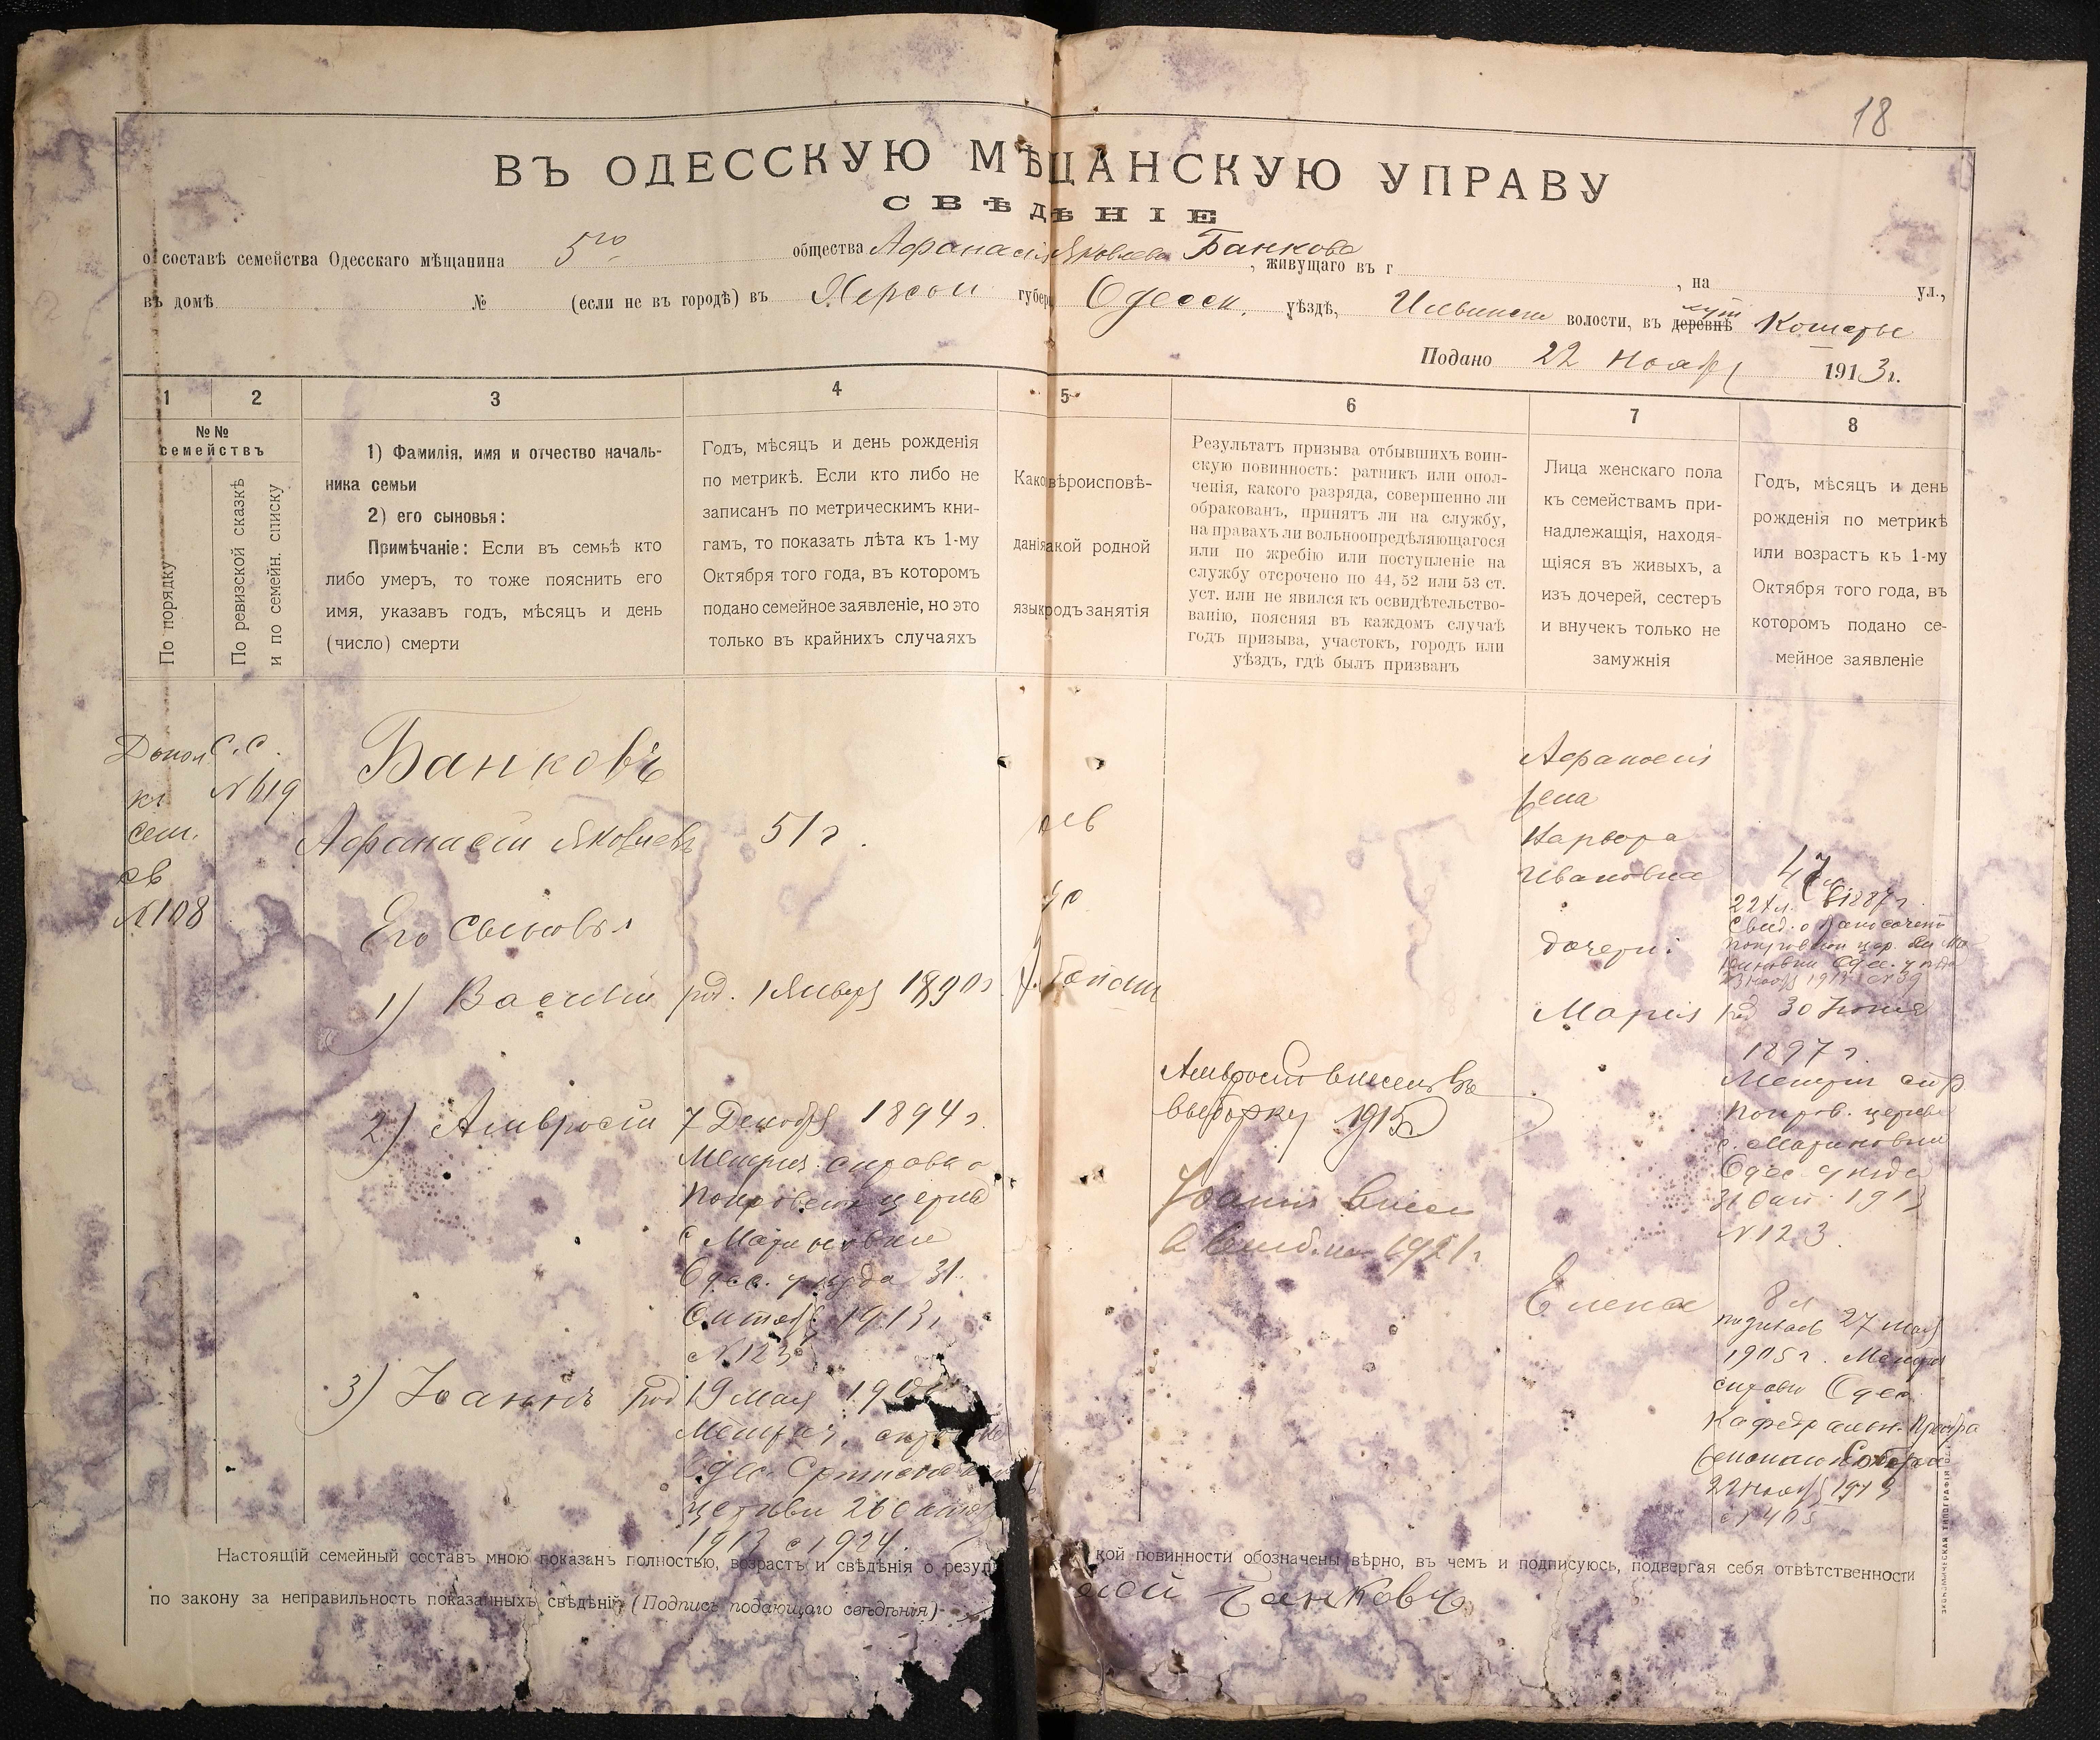 18
ВЪ ОДЕССКУЮ МѢЩАНСКУЮ УПРАВУ
СВѢДѢНІЕ
о составѣ семейства Одесскаго мѣщанина 5го общества Афанасія Яковлева Банкова, живущаго въ г , на ул.,
въ домѣ № (если не въ городѣ) въ Херсон губер Одесск. уѣздѣ, волости, въ деревнѣ хут Кошары
Подано 22 Ноябр 1913 г.
1 2 3 4 5 6 7 8
№№
семействъ
По порядку
По ревизской сказкѣ
и по семейн. списку
1) Фамилія, имя и отчество началь-
ника семьи
2) его сыновья:
Примѣчаніе: Если въ семьѣ кто
либо умеръ, то тоже пояснить его
имя, указавъ годъ, мѣсяцъ и день
(число) смерти
Годъ, мѣсяцъ и день рожденія
по метрикѣ. Если кто либо не
записанъ по метрическимъ кни-
гамъ, то показать лѣта къ 1-му
Октября того года, въ которомъ
подано семейное заявленіе, но это
только въ крайнихъ случаяхъ
Како вѣроисповѣ-
данія акой родной
язык родъ занятія
Результатъ призыва отбывшихъ воин-
скую повинность: ратникъ или опол-
ченія, какого разряда, совершенно ли
обракованъ, принятъ ли на службу,
на правахъ ли вольноопредѣляющагося
или по жребію или поступленіе на
службу отсрочено по 44, 52 или 53 ст.
уст. или не явился къ освидѣтельство-
ванію, поясняя въ каждомъ случаѣ
годъ призыва, участокъ, городъ или
уѣздъ, гдѣ былъ призванъ
Лица женскаго пола
къ семействамъ при-
надлежащія, находя-
щіяся въ живыхъ, а
изъ дочерей, сестеръ
и внучекъ только не
замужнія
Годъ, мѣсяцъ и день
рожденія по метрикѣ
или возрастъ къ 1-му
Октября того года, въ
которомъ подано се-
мейное заявленіе
Допол.
кг
сем.
св
№108
С.С.
№619
Банковъ
Афанасій Яковлевъ 51 г.
Его сыновья
1) Василій род. 1 Январ 1890 г
2) Амвросій 7 Декабр 1894 г.
Метрич. справка
Покровск церкв
с Мариновки
Одес. уѣзда 31
Октяб 1913 г
№123
3) Іоаннъ род 19 Мая 190
Метрич. спр
Одес. Срѣтенск
церкви 26 Октяб
1913 №1924.
Амвросій внесенъ въ
выборку 1915
Іоаннъ внес
в 1921 г
Афанасія
жена
Варвара
Ивановна 47
дочери:
Свид. о бракосочет
Покровской цер.
Марія род 30 Іюня
1897 г.
Метрич спр
Покров. церкв
с. Мариновки
Одес. уѣзда
31 Окт 1913
№123.
Елена 8 л
родилась 27 мая
1905 г. Метрич
справк Одес
Кафедральн. Преобра
женскаго Собора
22 Нояб 1913
№405
Настоящій семейный составъ мною показанъ полностью, возрастъ и свѣдѣнія о резул кой повинности обозначены вѣрно, въ чемъ и подписуюсь, подвергая себя отвѣтственности
по закону за неправильность показанныхъ свѣдѣній (Подпись подающаго свѣдѣнія) Банковъ